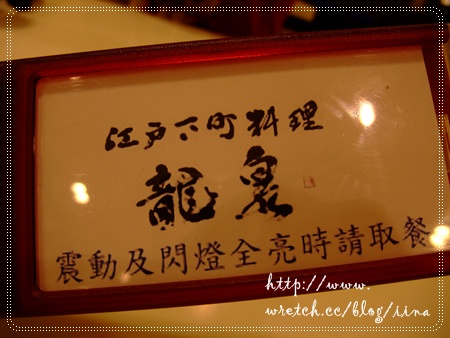 江戶下町料理
龍泉
震動及閃燈全亮時請取餐
http://www.
wretch.cc/blog/iina